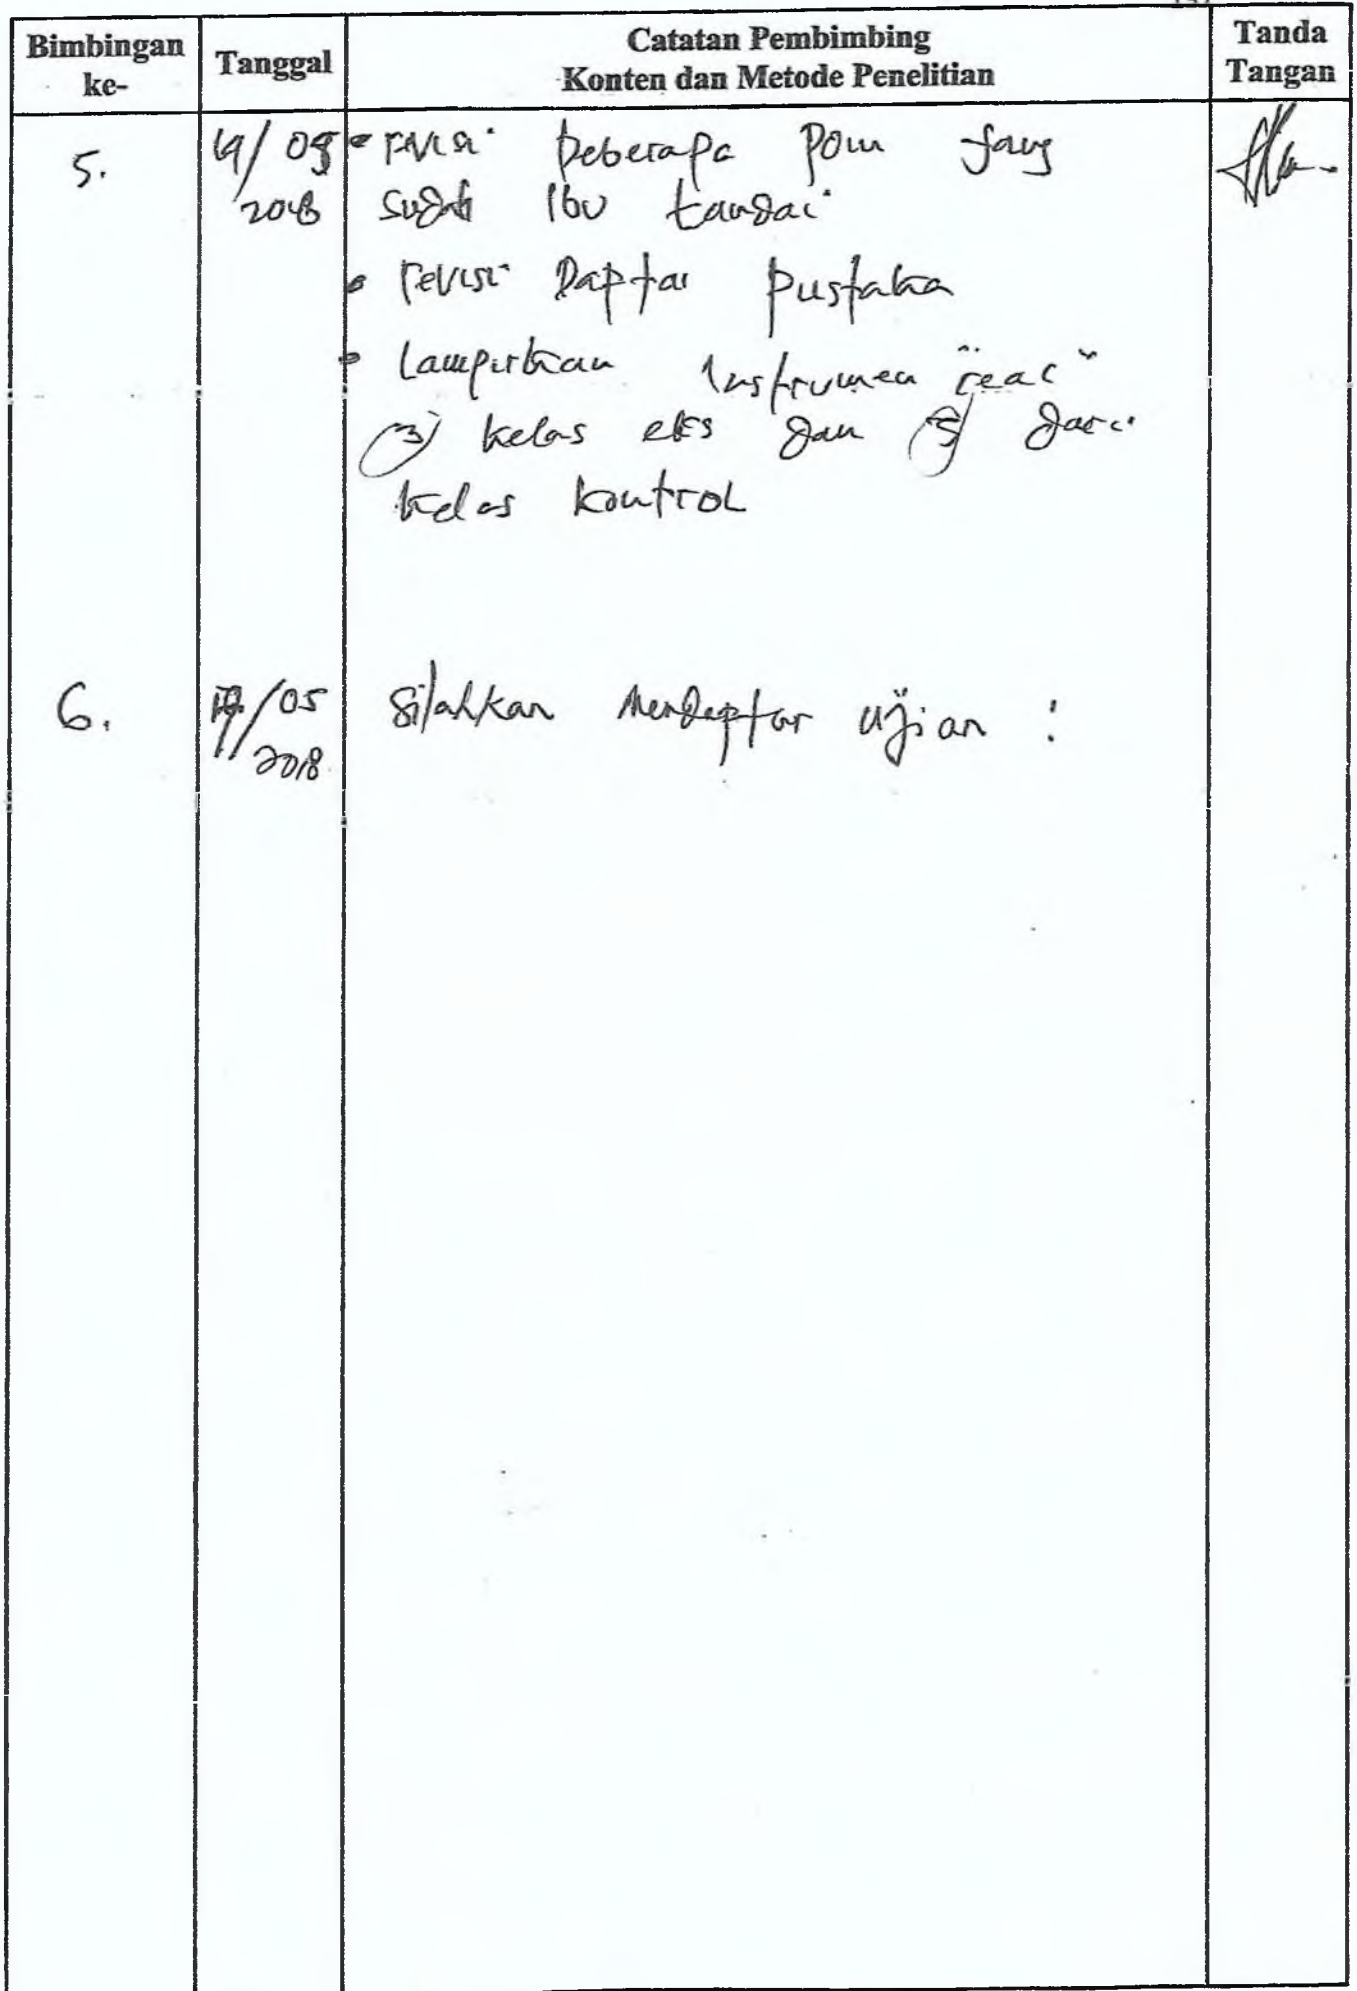 Bimbingan ke-
Tanggal
Catatan Pembimbing
Konten dan Metode Penelitian
Tanda Tangan
5.
2018
revisi beberapa poin yang
sudah Ibu tandai
revisi Daptar pustaka
Lampirkan instrumen "real"
(3) kelas eks dan dari
kelas kontrol
6.
/05
2018
Silahkan mendaptar ujian !